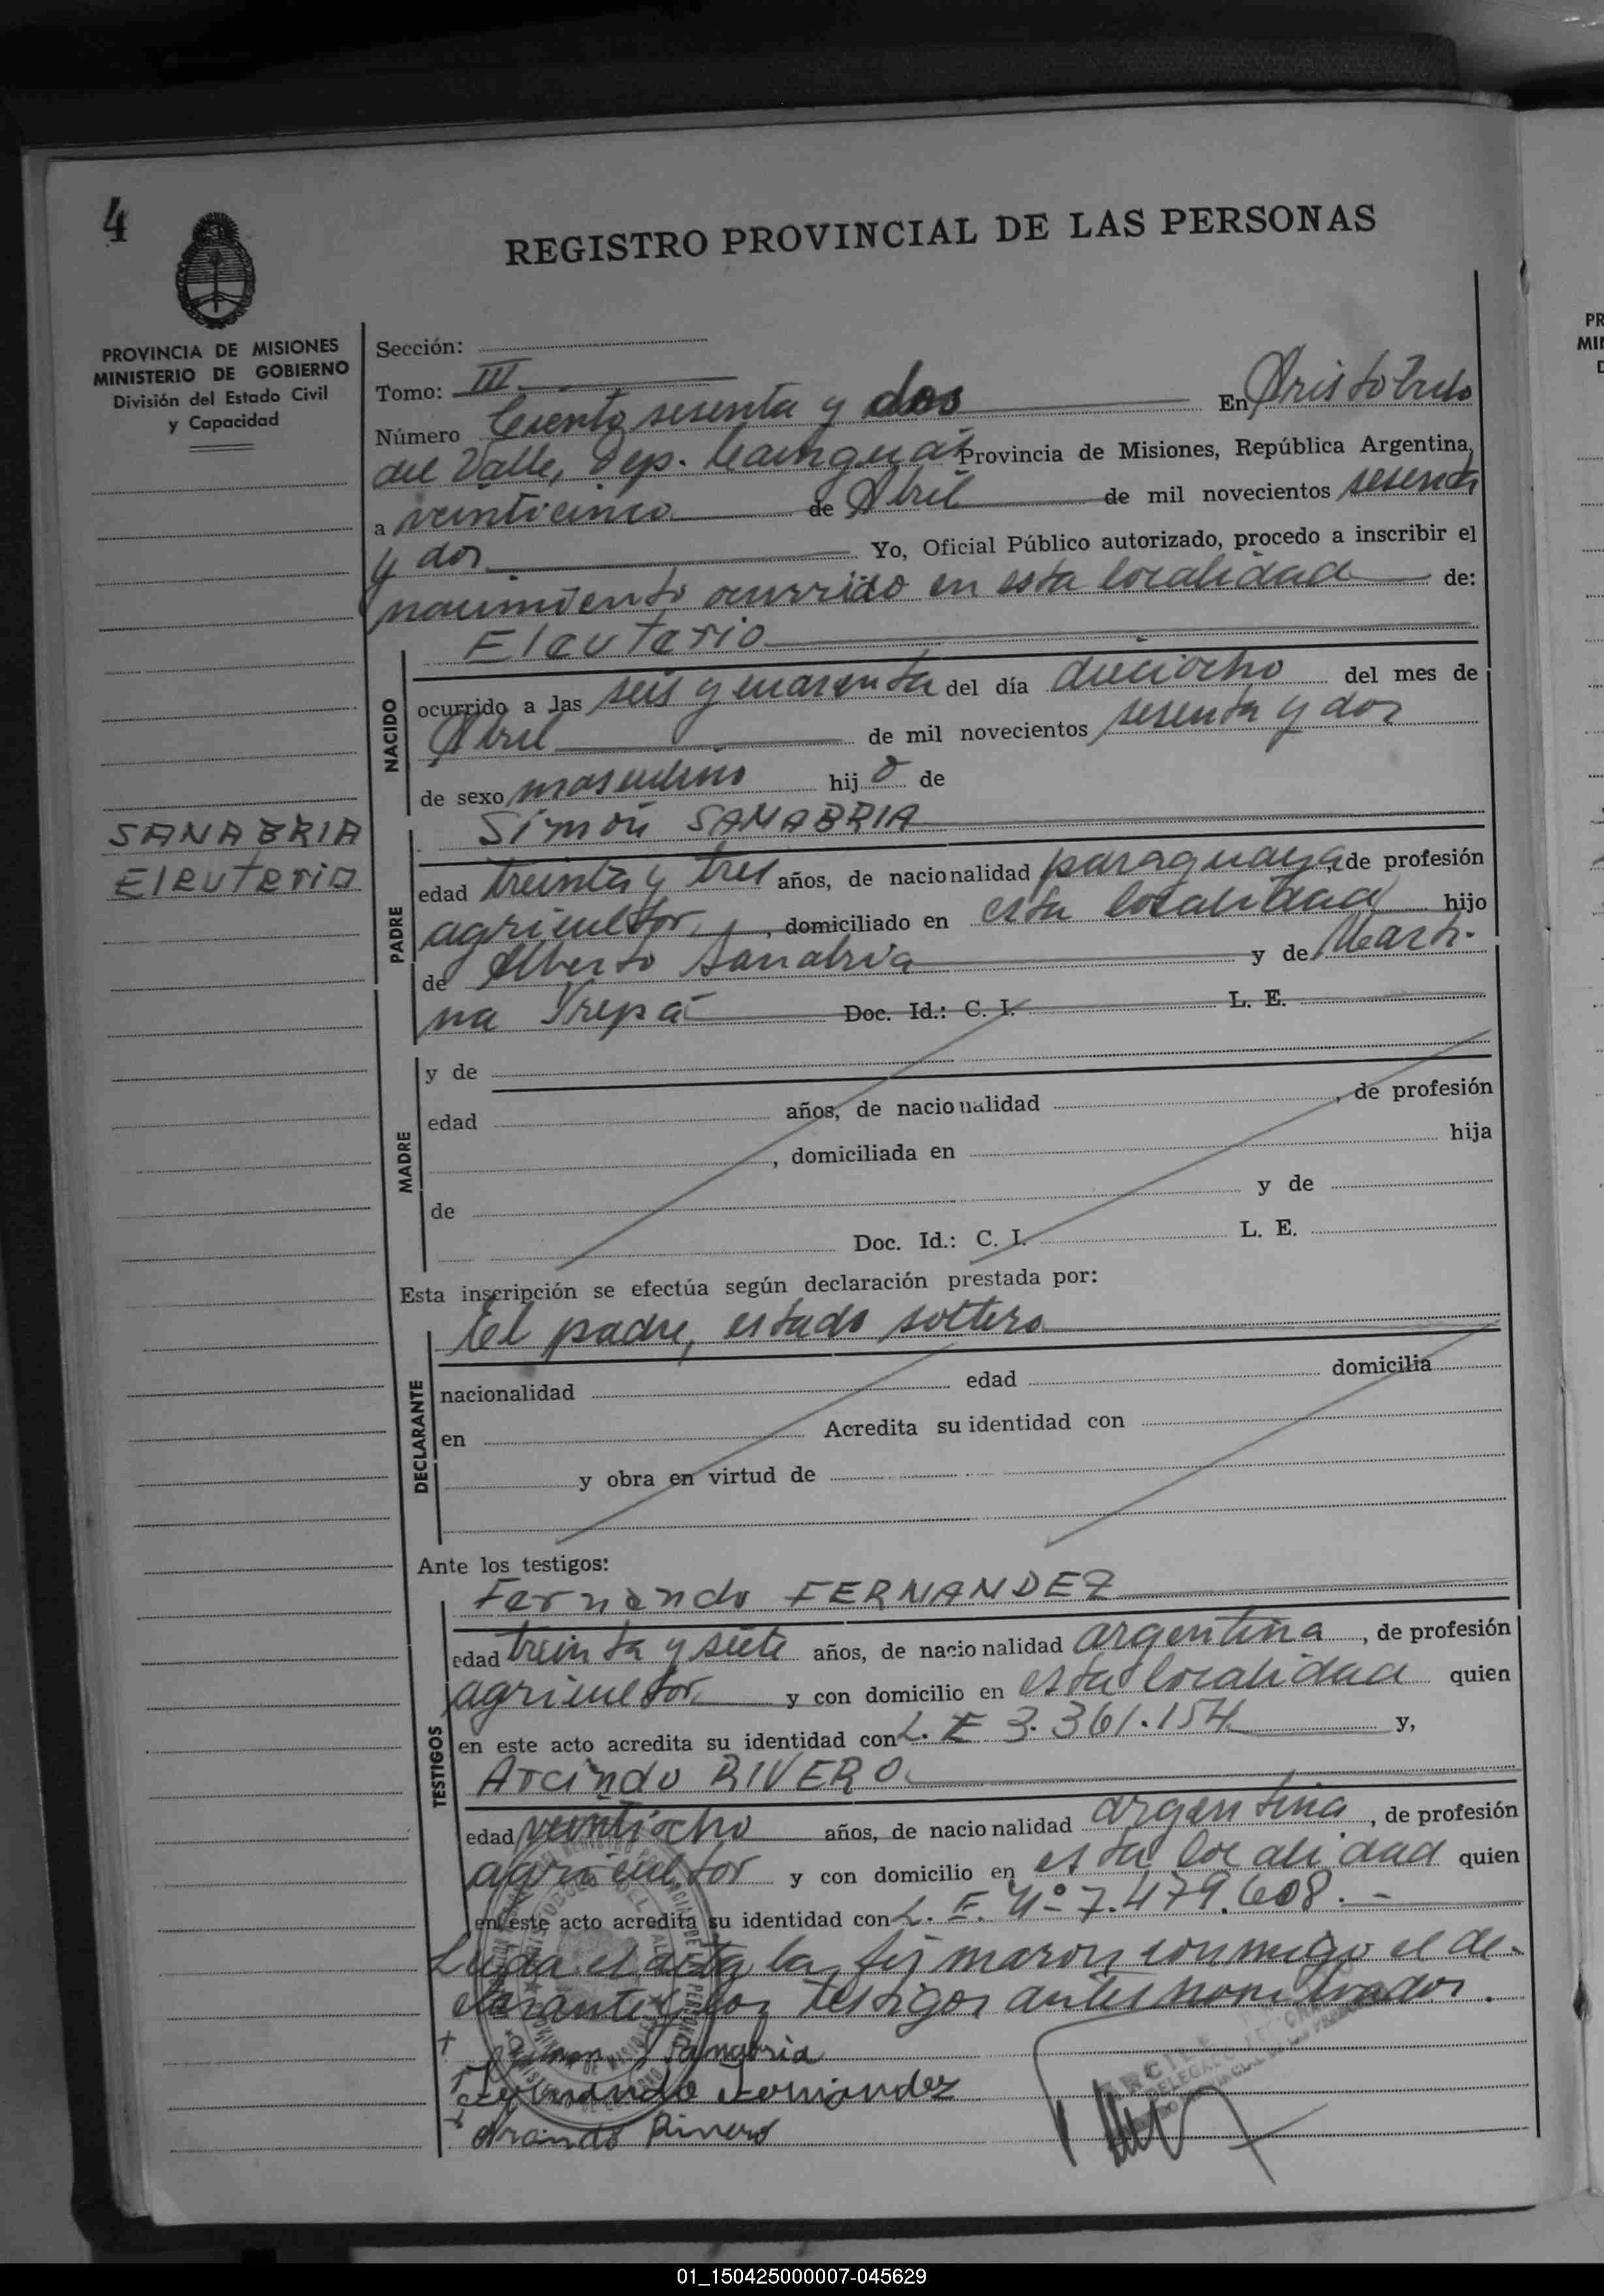 4
REGISTRO PROVINCIAL DE LAS PERSONAS
PROVINCIA DE MISIONES
MINISTERIO DE GOBIERNO
División del Estado Civil
y Capacidad
SANABRIA
Eleuterio
Sección:
Tomo: III
Número Ciento sesenta y dos En Aristobulo
del Valle, Dep. Cainguás Provincia de Misiones, República Argentina,
a veinticinco de Abril de mil novecientos sesenta
y dos Yo, Oficial Público autorizado, procedo a inscribir el
nacimiento ocurrido en esta localidad de:
Eleuterio
NACIDO
ocurrido a las seis y cuarenta del día dieciocho del mes de
Abril de mil novecientos sesenta y dos
de sexo masculino hij o de
Simón SANABRIA
PADRE
edad treinta y tres años, de nacionalidad paraguaya, de profesión
agricultor, domiciliado en esta localidad hijo
de Alberto Sanabria y de Marti-
na Doc. Id.: C. I. L. E.
MADRE
y de
edad años, de nacionalidad , de profesión
, domiciliada en hija
de y de
Doc. Id.: C. I. L. E.
Esta inscripción se efectúa según declaración prestada por:
El padre, estado soltero
DECLARANTE
nacionalidad edad domicilia
en Acredita su identidad con
y obra en virtud de
Ante los testigos:
Fernando FERNANDEZ
TESTIGOS
edad treinta y siete años, de nacionalidad argentina, de profesión
agricultor y con domicilio en esta localidad quien
en este acto acredita su identidad con L. E 3.361.154 y,
Arcindo RIVERO
edad veintiocho años, de nacionalidad argentina, de profesión
agricultor y con domicilio en esta localidad quien
en este acto acredita su identidad con L. E. Nº 7.479.608.-
Leida el acta la firmaron conmigo el de-
clarante y los testigos antes nombrados.
Simon Sanabria
Fernando Fernandez
Arcindo Rivero
01_150425000007-045629